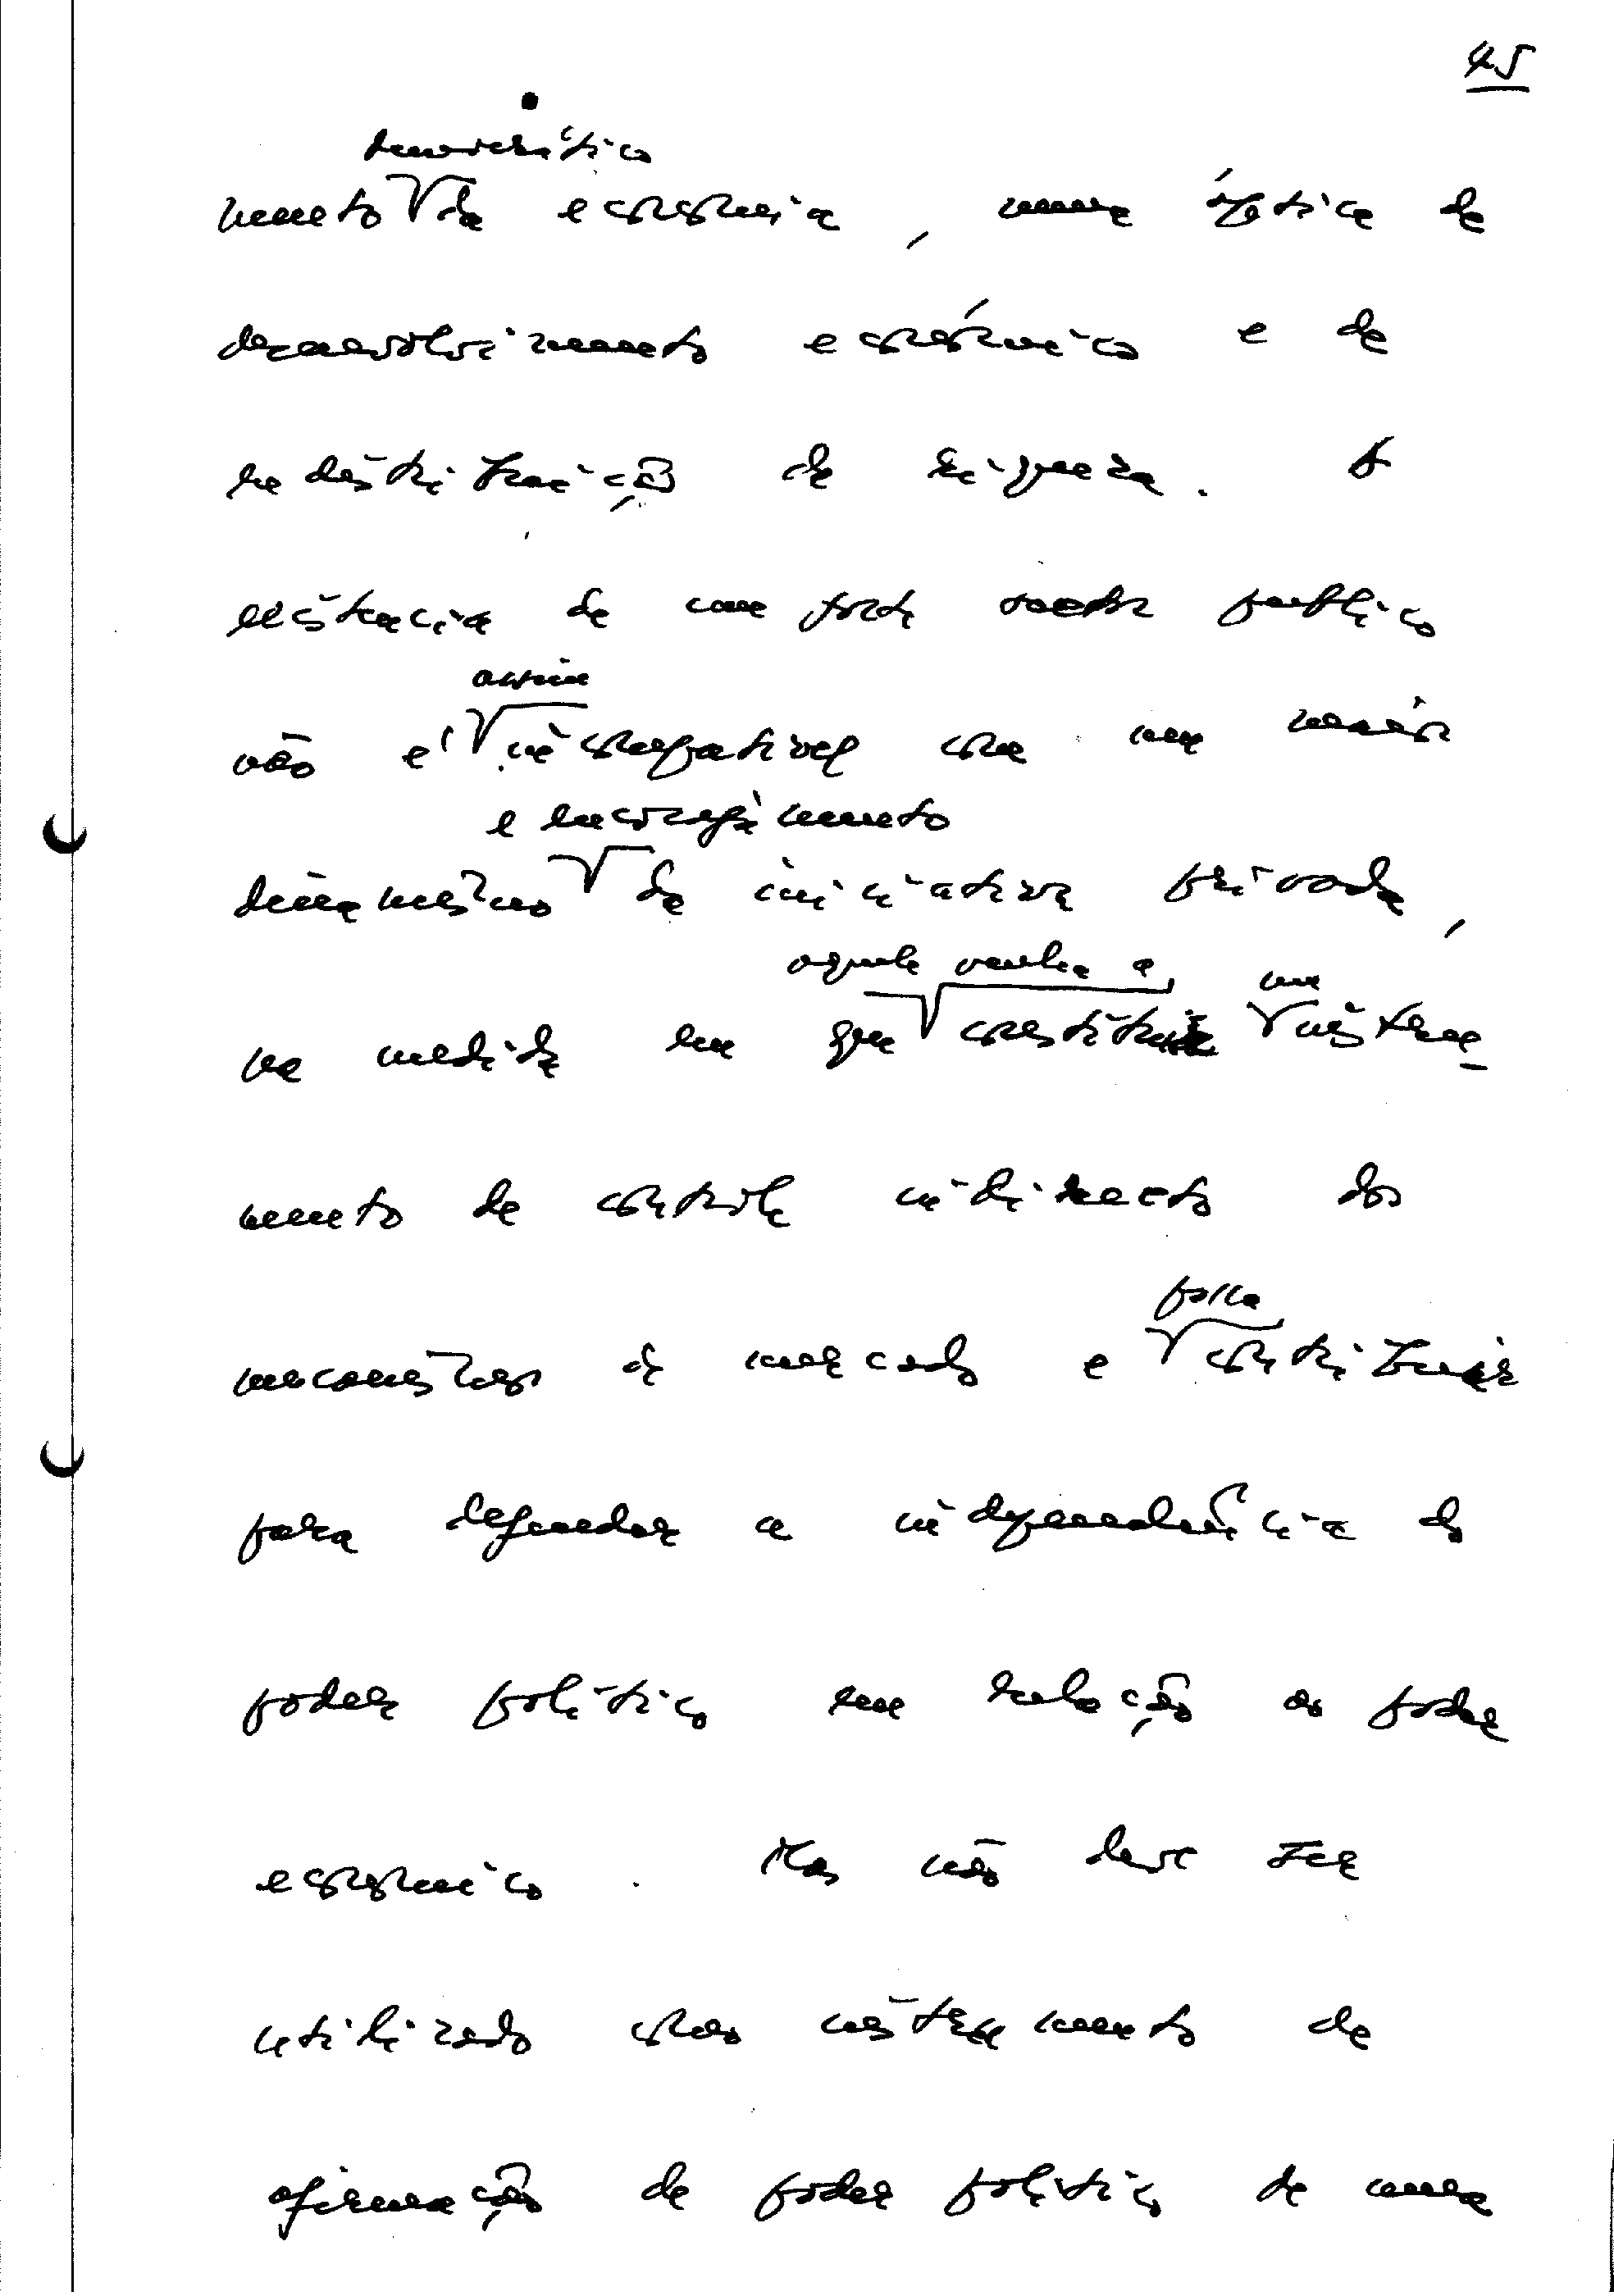 45
democrático
mento da economia, numa óptica de
desenvolvimento económico e de
redistribuição de riqueza. A
existência de um forte sector publico
assim
não é incompativel com um maior
e encorajamento
dinamismo da iniciativa privada,
aquele venha a um
na medida em que constituir instru-
mento de controle indirecto dos
possa
mecanismos de mercado e contribuir
para defender a independência do
poder político em relação ao poder
económico. Mas não deve ser
utilizado como instrumento de
afirmação de poder político de uma